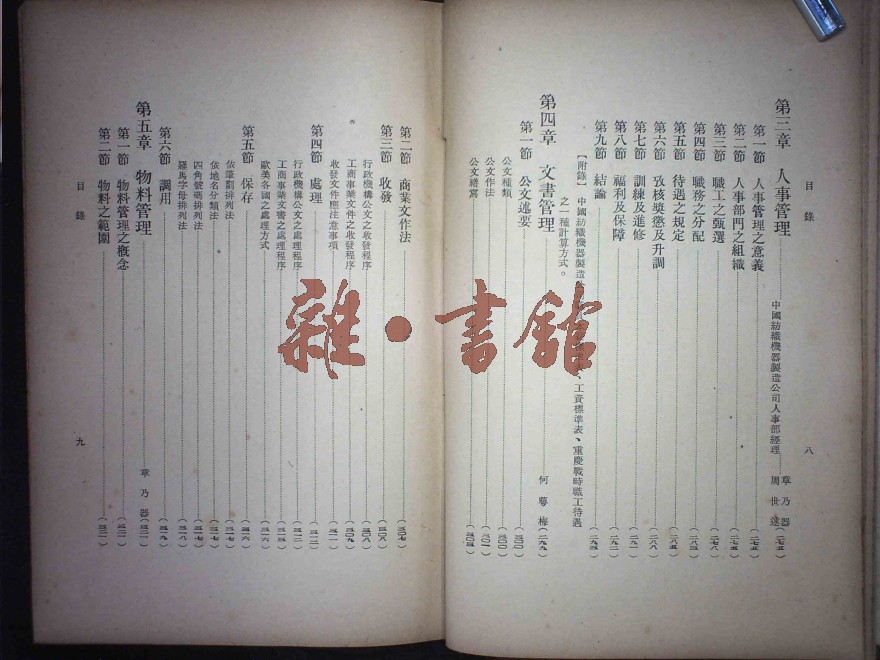 目錄
八
第三章 人事管理 中國紡織機器製造公司人事部經理 章乃器 周世逵(二七五)
第一節 人事管理之意義(二七五)
第二節 人事部門之組織(二七五)
第三節 職工之甄選(二七八)
第四節 職務之分配(二八三)
第五節 待遇之規定(二八五)
第六節 攷核獎懲及升調(二八八)
第七節 訓練及進修(二九一)
第八節 福利及保障(二九二)
第九節 結論(二九四)
【附錄】 中國紡織機器製造 工資標準表、重慶戰時職工待遇
之一種計算方式。
第四章 文書管理 何萼梅(二九九)
第一節 公文述要(三〇〇)
公文種類(三〇〇)
公文作法(三〇一)
公文繕寫(三〇三)
第二節 商業文作法(三〇七)
第三節 收發(三〇八)
行政機構公文之收發程序(三〇八)
工商事業文件之收發程序(三〇九)
收發文件應注意事項(三一一)
第四節 處理(三一二)
行政機構公文之處理程序(三一二)
工商事業文書之處理程序(三一三)
歐美各國之處理方式(三一六)
第五節 保存(三一六)
依筆劃排列法(三一七)
依地名分類法(三一七)
四角號碼排列法(三一七)
羅馬字母排列法(三一八)
第六節 調用(三一九)
第五章 物料管理 章乃器(三二一)
第一節 物料管理之概念(三二一)
第二節 物料之範圍(三二一)
目錄
九
雜·書館